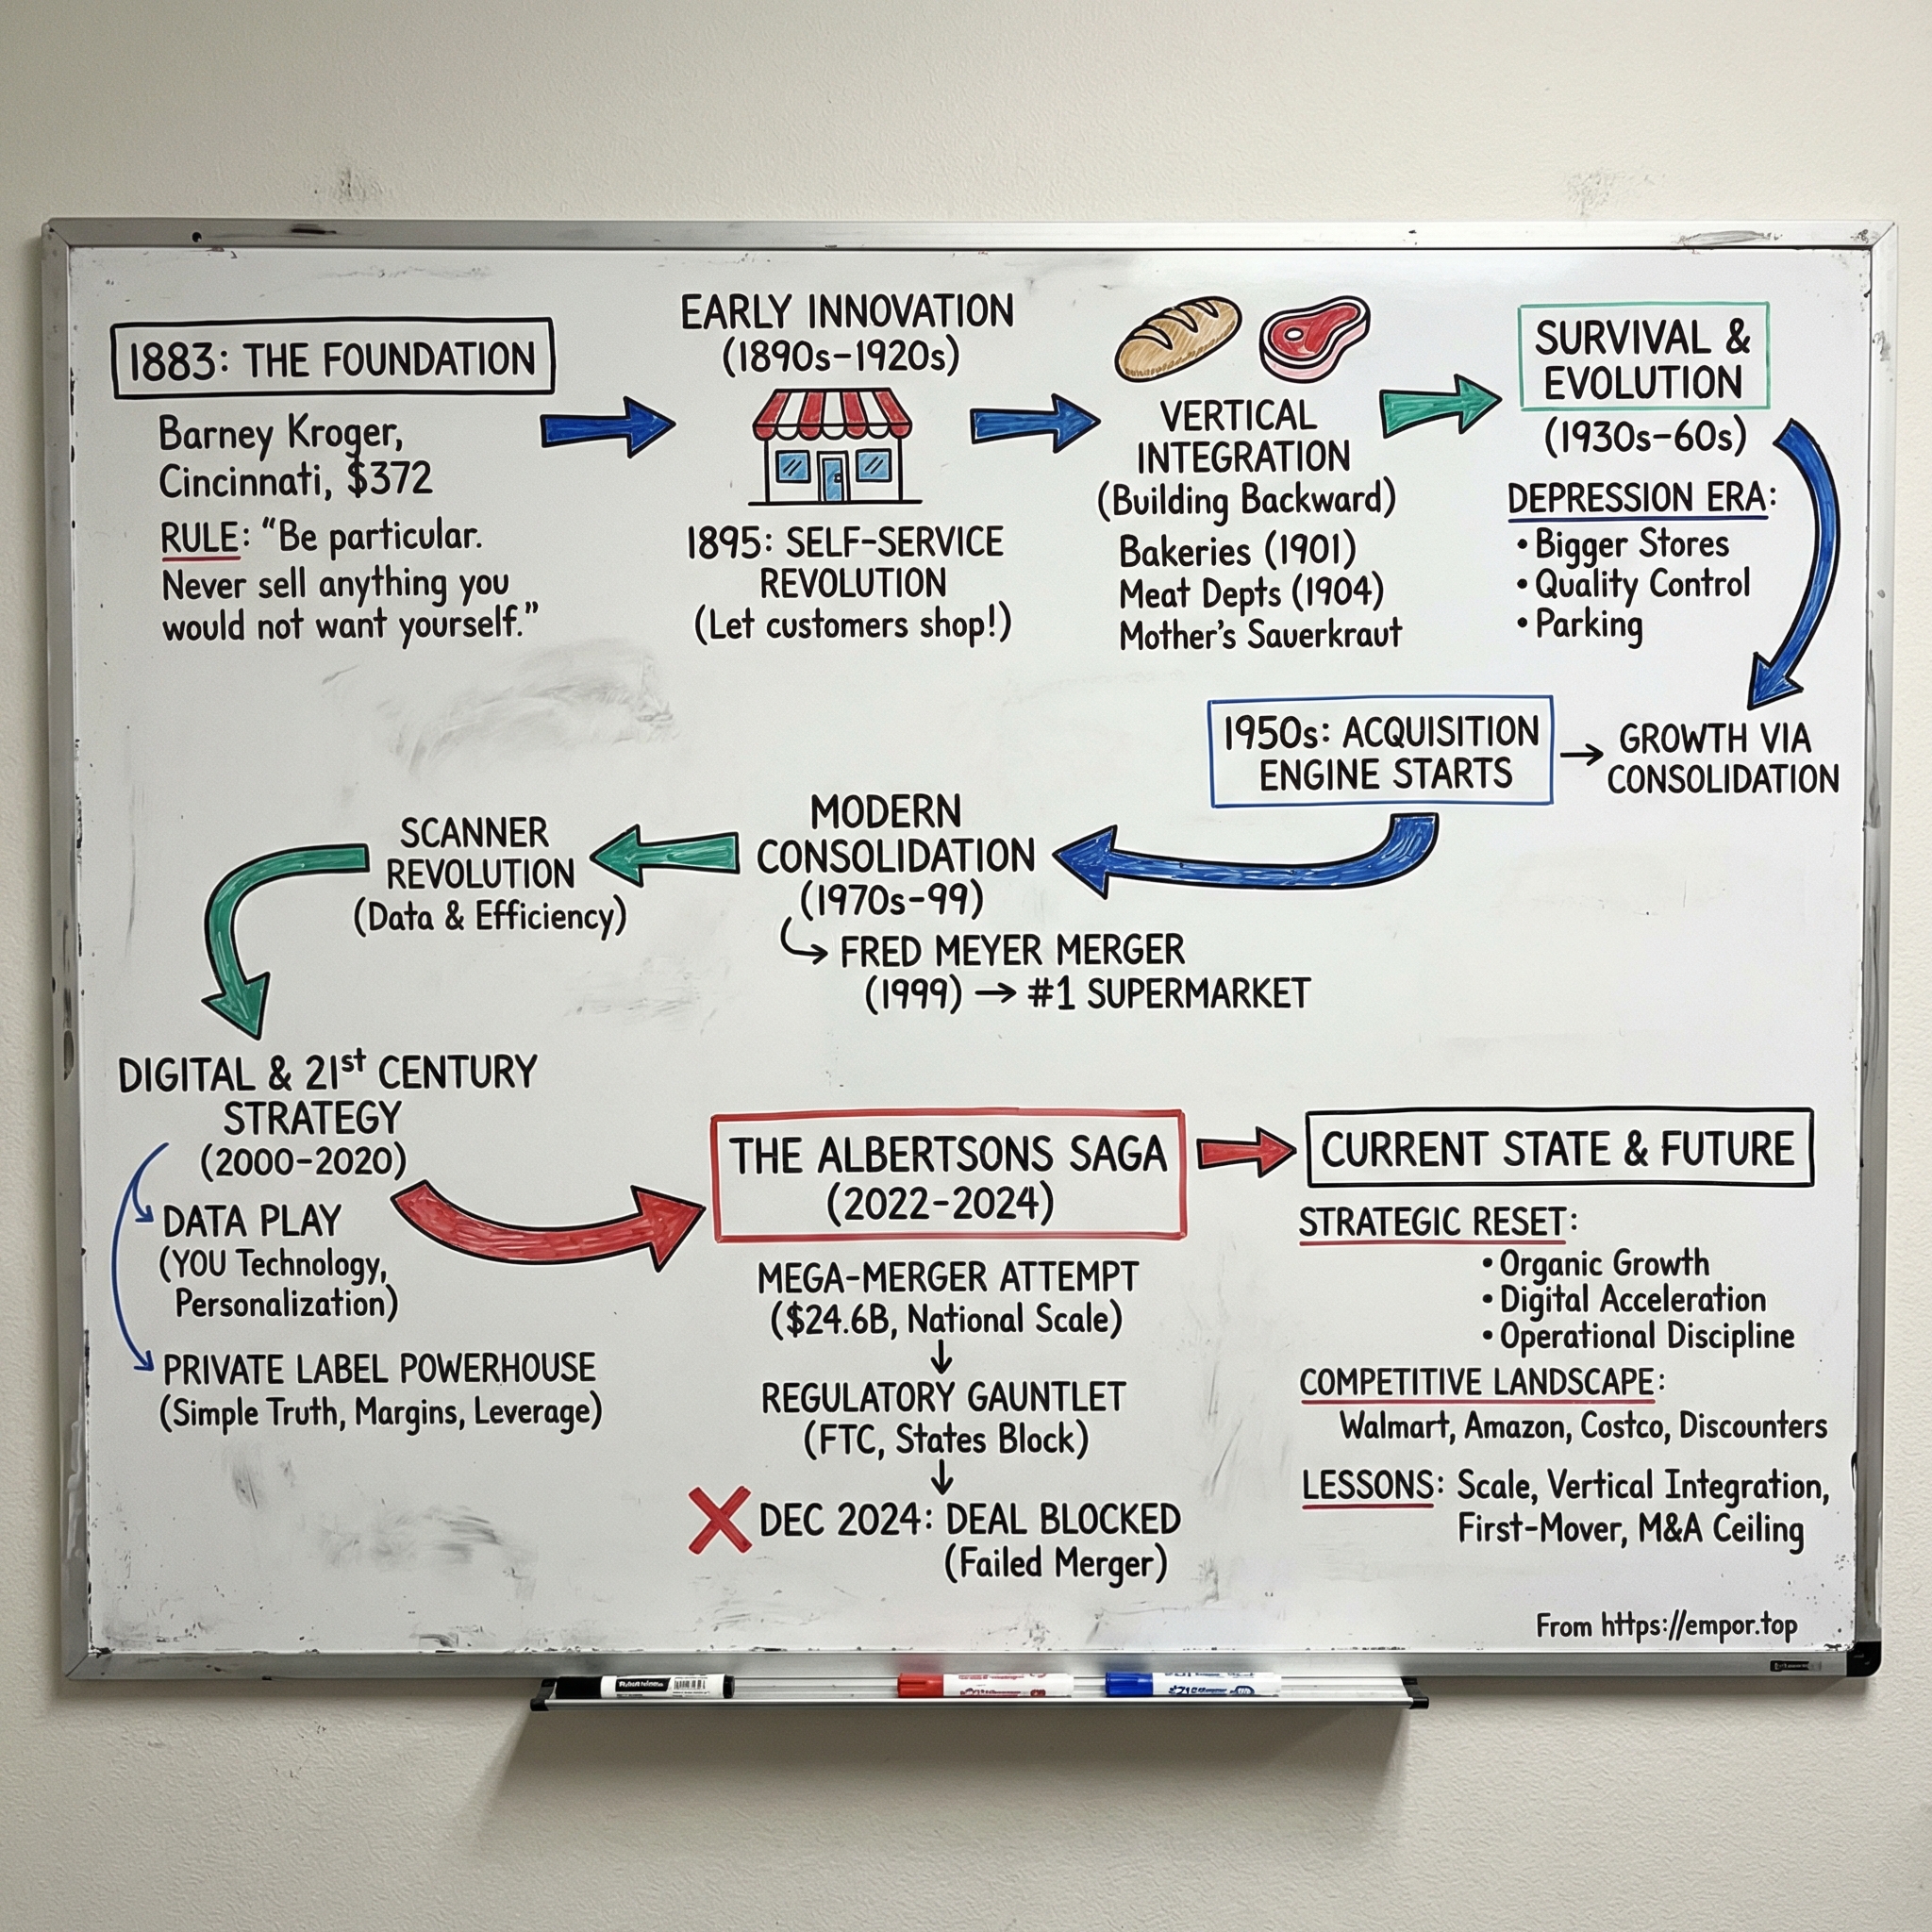 1883: THE FOUNDATION
Barney Kroger,
Cincinnati, $372
RULE: “Be particular.
Never sell anything you
would not want yourself.”
EARLY INNOVATION
(1890s–1920s)
1895: SELF-SERVICE
REVOLUTION
(Let customers shop!)
VERTICAL
INTEGRATION
(Building Backward)
Bakeries (1901)
Meat Depts (1904)
Mother's Sauerkraut
SURVIVAL &
EVOLUTION
(1930s–60s)
DEPRESSION ERA:
• Bigger Stores
• Quality Control
• Parking
1950s: ACQUISITION
ENGINE STARTS
→ GROWTH VIA
CONSOLIDATION
MODERN
CONSOLIDATION
(1970s–99)
FRED MEYER MERGER
(1999) → #1 SUPERMARKET
SCANNER
REVOLUTION
(Data & Efficiency)
DIGITAL & 21st CENTURY
STRATEGY
(2000–2020)
DATA PLAY
(YOU Technology,
Personalization)
PRIVATE LABEL POWERHOUSE
(Simple Truth, Margins, Leverage)
THE ALBERTSONS SAGA
(2022–2024)
MEGA-MERGER ATTEMPT
($24.6B, National Scale)
REGULATORY GAUNTLET
(FTC, States Block)
DEC 2024: DEAL BLOCKED
(Failed Merger)
CURRENT STATE & FUTURE
STRATEGIC RESET:
• Organic Growth
• Digital Acceleration
• Operational Discipline
COMPETITIVE LANDSCAPE:
Walmart, Amazon, Costco, Discounters
LESSONS: Scale, Vertical Integration,
First-Mover, M&A Ceiling
From https://empor.top